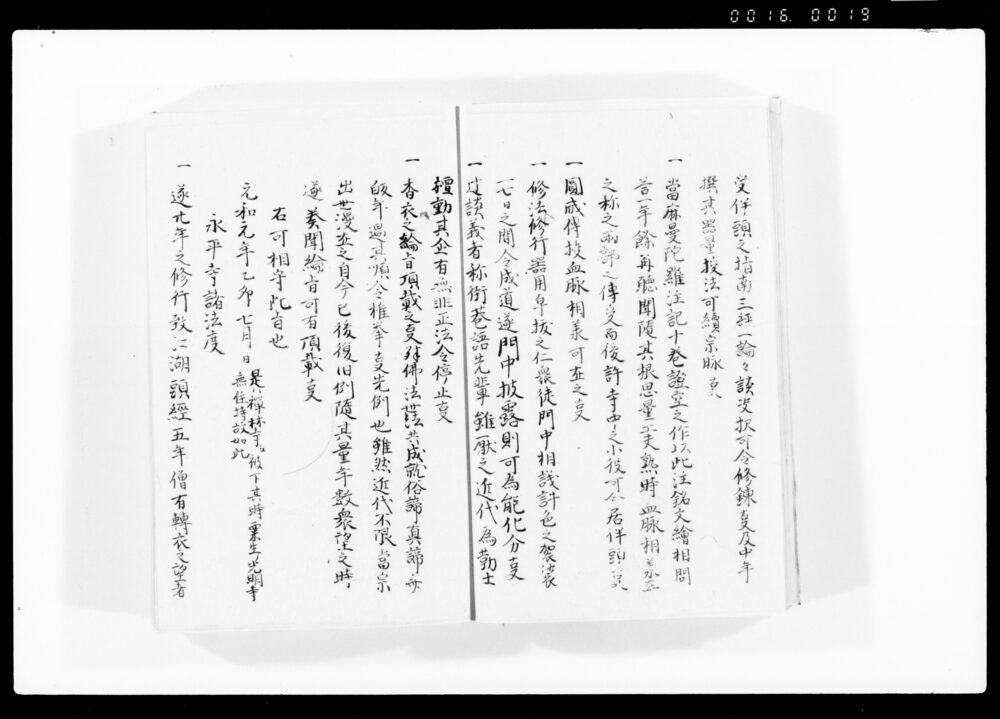 0016. 0019
受伴頭之指南三経一論々談決択可令修錬事及中年
撰其器量授法可続宗脉事
一 當麻曼陀羅注記十巻證空之作以此注銘文繪相問
答一年餘再聴聞随其根思量工夫熟時血脉相承
之称之両部之傳受而後許寺中之小役可令居伴頭事
一 圓戒傳授血脉相義可在之事
一 修法修行器用卓抜之仁衆徒門中相談許色之袈裟
一七日之間令成道遂門中披露則可為能化分事
一 辻談義者称街巷語先輩雖厭之近代為勤士
擅動其企有無非正法令停止事
一 香衣之綸旨頂戴之事於佛法薀共成就俗諦真諦
年過其順令推挙事先例也雖然近代不限當宗
出世漫在之自今已後復旧例随其量年数衆望之時
遂奏聞綸旨可有頂戴事
右可相守此旨也
元和元年乙卯七月日 是ハ禅林寺江被下其時粟生光明寺
無住持故如此
永平寺諸法度
一 遂廿年之修行致江湖頭經五年僧有轉衣之望者